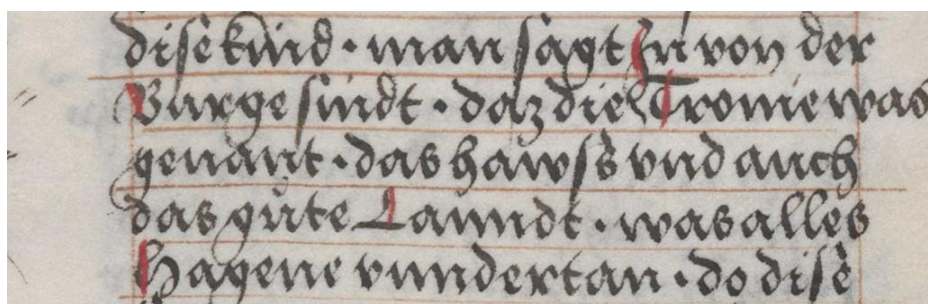 dise kind · man sagt In von der
Burge sindt · daz die Tronie was
genant · das hawss vnd auch
das guͦte Lanndt · was alles
Hagene vnndertan · do dise